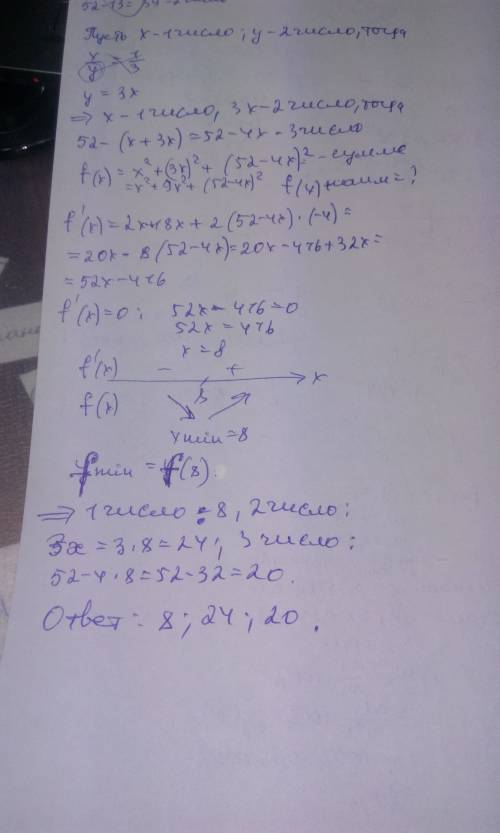 52-13=
Пусть x-1 число; y-2 число, тогда
x/y = 1/3
y = 3x
⇒ x-1 число, 3x-2 число, тогда
52-(x+3x)=52-4x-3 число
f(x)=x²+(3x)²+(52-4x)²-сумма
=x²+9x²+(52-4x)² f(x) наим=?
f'(x)=2x+18x+2(52-4x)·(-4)=
=20x-8(52-4x)=20x-416+32x=
=52x-416
f'(x)=0: 52x-416=0
52x=416
x=8
f'(x) - + x
8
f(x)
xmin=8
fmin=f(8).
⇒ 1 число: 8, 2 число:
3x=3·8=24; 3 число:
52-4·8=52-32=20.
Ответ: 8; 24; 20.